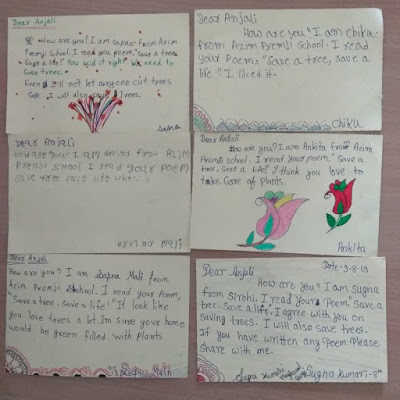 Dear Anjali
How are you? I am sapna from Azim
Premji School. I read you poem, "Save a tree
Save a life." You said it right We need to
Save trees.
Even I'll not let anyone cut trees
I will also save trees.
Dear Anjali
How are you? I am chiku
from Azim Premji School. I read
your Poems "Save a tree, save a
life" I liked it.
Chiku
Dear Anjali
How are you I am Arvind from Azim
Premji School I read your poem
save tree save life
Arvind Mali
Dear Anjali
How are you? I am Ankita from Azim
Premji school. I read your poem, "Save a
tree, Save a life!" I think you love to
take Care of Plants.
Ankita
Dear Anjali
How are you? I am Sapna Mali from
Azim Premji School. I read your poem,
"Save a tree. Save a life!" It look like
you love trees a lot. Im sure your home
would be green filled with plants
Sapna Mali
Dear Anjali
Date-9-8-19
How are you? I am Sugna
from Sirohi. I read your Poem "Save a
tree. Save a life. I agree with you on
saving trees. I will also save trees.
If you have written any Poem. Please
Share with me.
Sugna Kumari
Sugna Kumari-8th